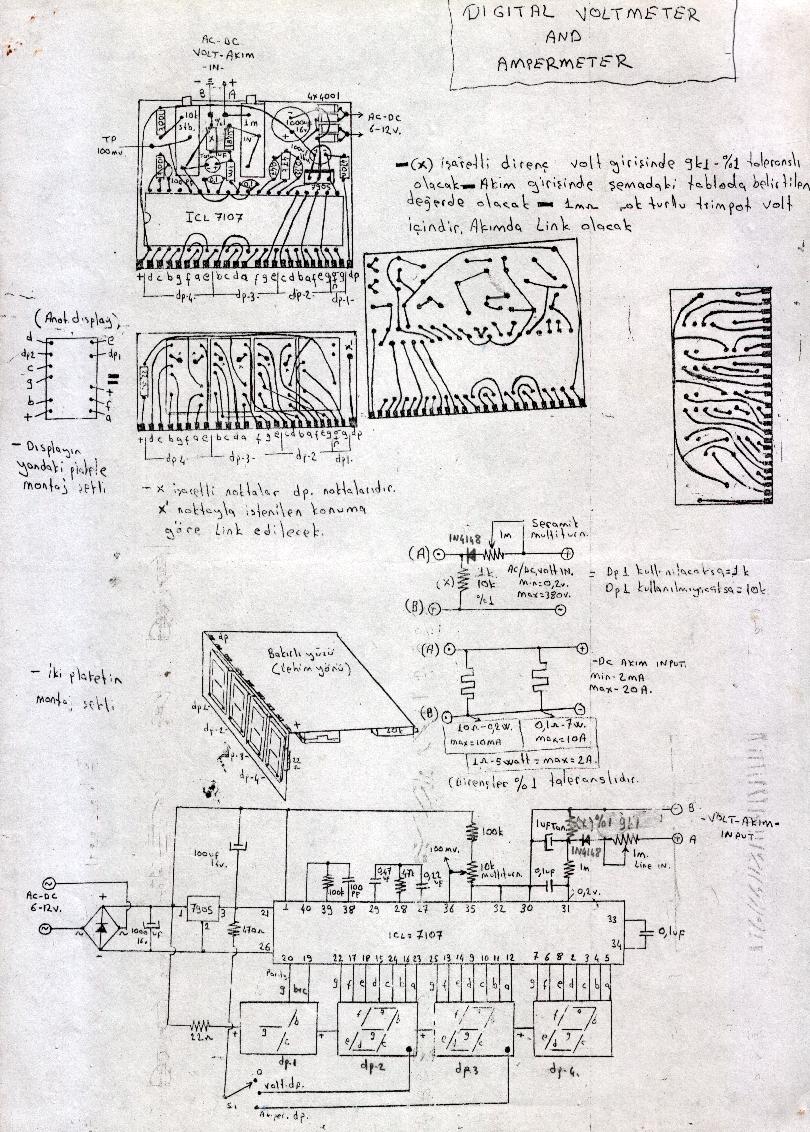 DIGITAL VOLTMETER
AND
AMPERMETER
AC-DC
VOLT-AKIM
-IN-
- +
B A
4x4001
AC-DC
6-12v.
TP
100mv
10k
stb.
1m
IN
1000uf
16v
7905
ICL 7107
+ d c b g f a e b c d a f g e c d b a f e g g dp
dp-4 dp-3- dp-2 dp-1-
-(x) işaretli direnç volt girişinde 9k1-%1 toleranslı
olacak- Akım girişinde şemadaki tabloda belirtilen
değerde olacak - 1mΩ çok turlu trimpot volt
içindir. Akımda Link olacak
(Anot display)
d
dp2
c
g
b
+
e
dp1
+
f
a
- Displayin
yandaki plakete
montaj şekli
+ d c b g f a e b c d a f g e c d b a f e g g dp
dp4 dp-3- dp-2 dp1-
- x işaretli noktalar dp. noktalarıdır.
x' noktayla istenilen konuma
göre Link edilecek.
Seramik
multiturn.
1N4148
1m
(A)
(x)
1k
10k
%1
AC/DC, volt IN.
min=0,2v.
max=380v.
(B)
= Dp1 kullanılacaksa=1k
Dp1 kullanılmıyacaksa=10k
(A)
-DC AKIM INPUT.
min- 2mA
max- 20A.
(B)
10Ω-0,2w.
max=10mA
0,1Ω-7w.
max=10A
1Ω-5watt=max=2A.
(Dirençler %1 toleranslıdır.
- İki plaketin
montaj şekli
dp
Bakırlı yüzü
(Lehim yönü)
dp-1-
dp-2-
dp-3-
dp-4-
22Ω
B
-VOLT-AKIM-
INPUT-
A
100uf
16v.
100k
100mv.
10k
multiturn
1uf Tan.
(x)%1 9k1
1N4148
1m.
Line IN.
0,1uf
1m
0,2v.
100k
100
PF
0,47
uf
47k
0,22
uf
AC-DC
6-12v.
+
1000
uf
16v.
7905
1 3
2
470Ω
21
26
1 40 39 38 29 28 27 36 35 32 30 31
33
34
0,1uf
ICL=7107
20 19 22 17 18 15 24 16 23 25 13 14 9 10 11 12 7 6 8 2 3 4 5
g b+c g f e d c b a g f e d c b a g f e d c b a
22Ω
+
g b c
f a b g e d c
f a b g e d c
f a b g e d c
dp-1 dp-2 dp.3 dp-4.
0
volt.dp.
S.1
Amper. dp.